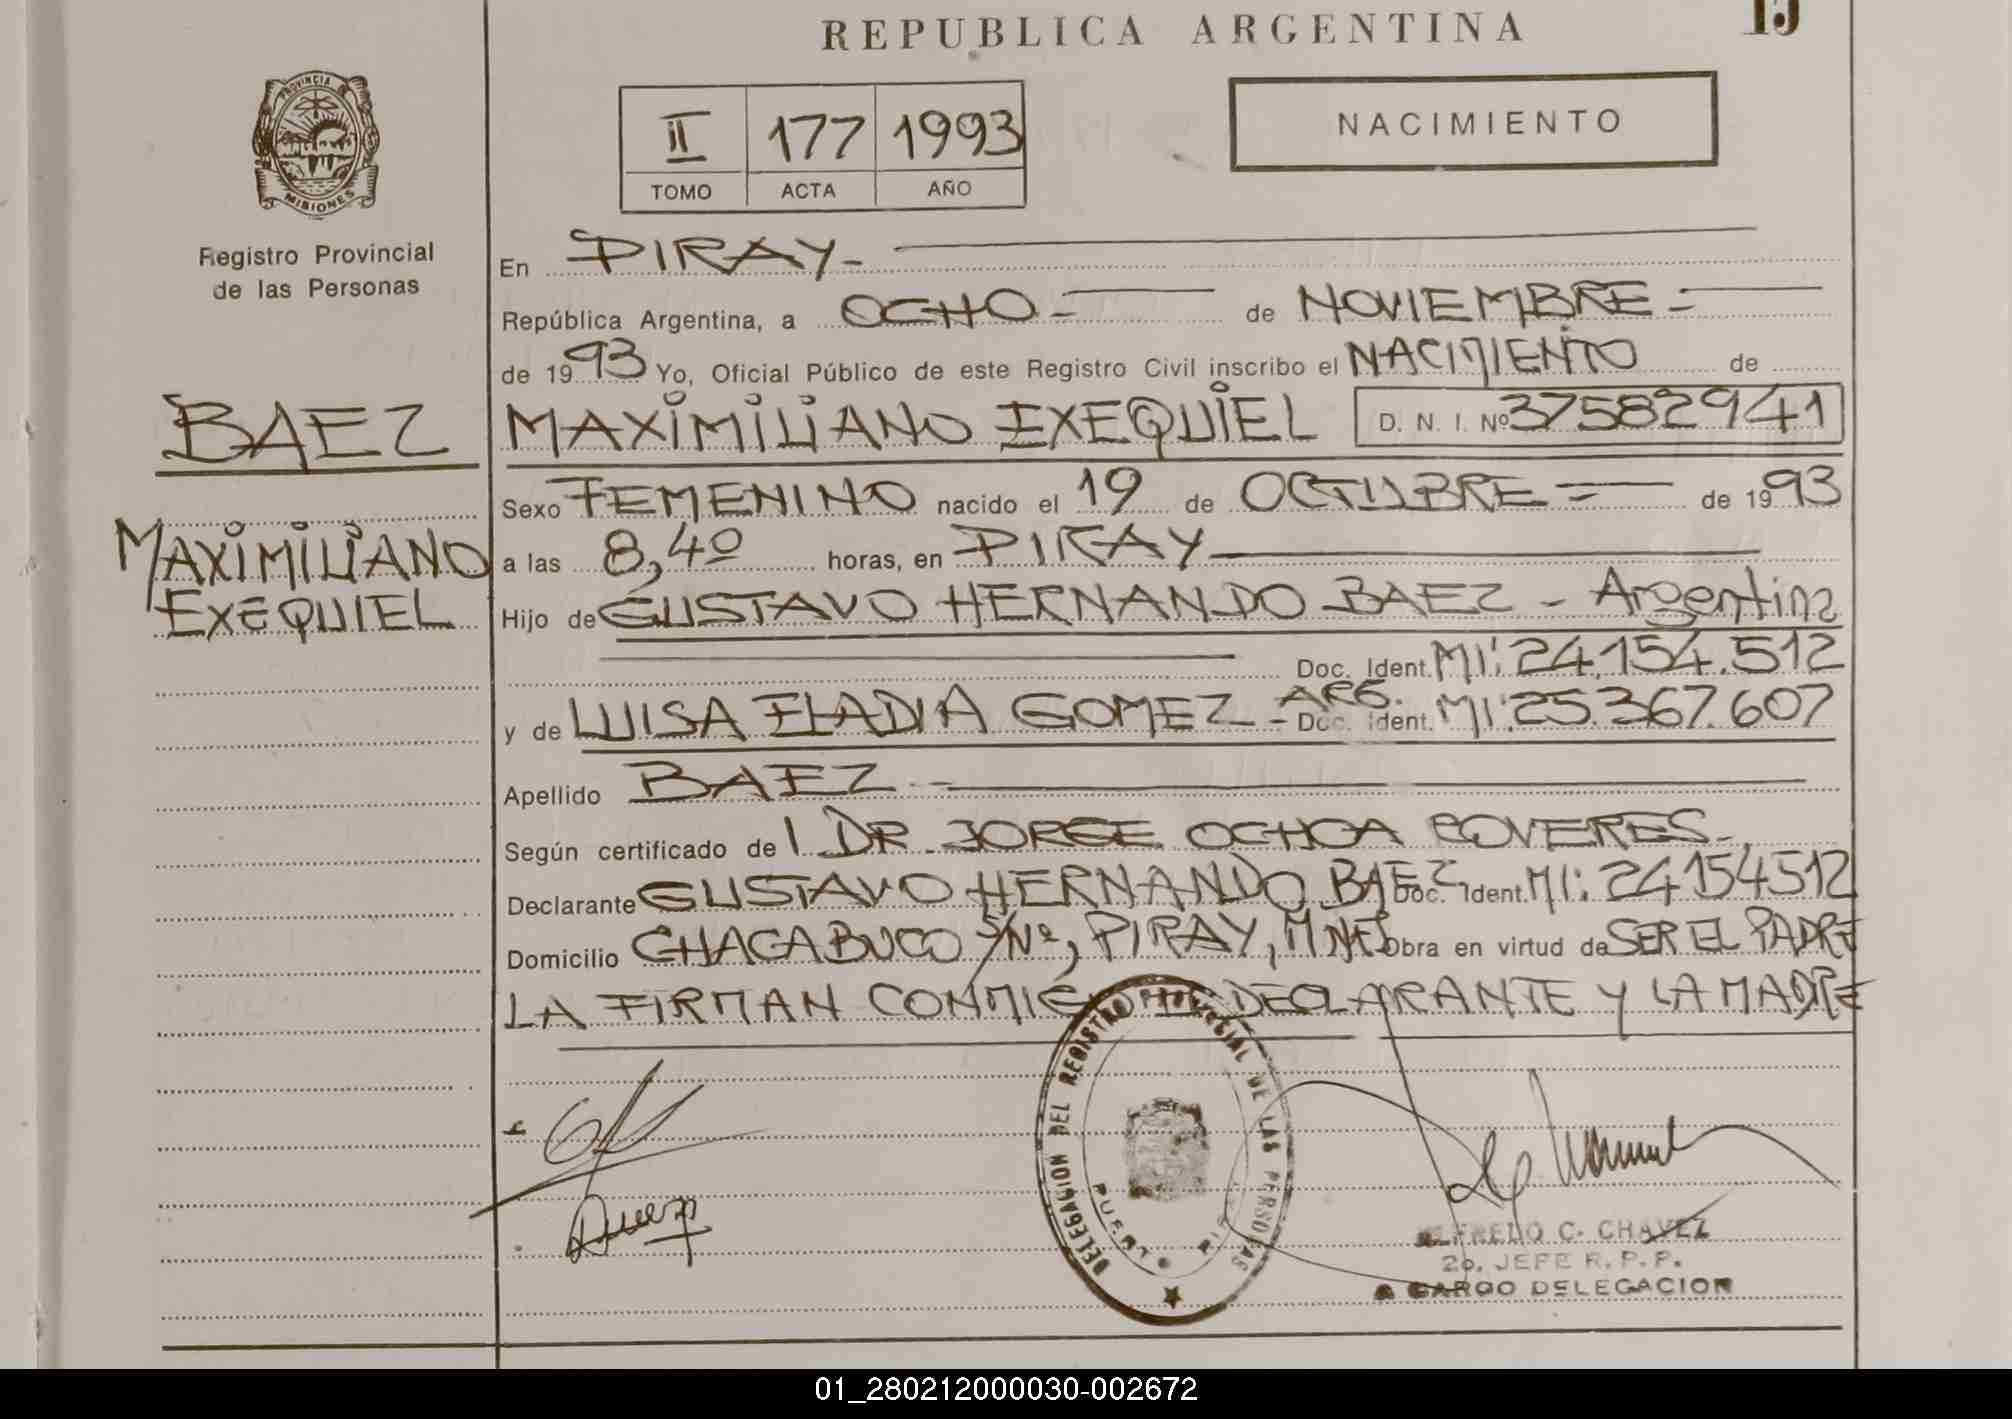 REPUBLICA ARGENTINA
15
PROVINCIA DE
MISIONES
Registro Provincial
de las Personas
II 177 1993
TOMO ACTA AÑO
NACIMIENTO
En PIRAY-
República Argentina, a OCHO = de NOVIEMBRE =
de 1993 Yo, Oficial Público de este Registro Civil inscribo el NACIMIENTO de
BAEZ
MAXIMILIANO EXEQUIEL D. N. I. Nº 37582941
MAXIMILIANO
EXEQUIEL
Sexo FEMENINO nacido el 19 de OCTUBRE = de 1993
a las 8,40 horas, en PIRAY
Hijo de GUSTAVO HERNANDO BAEZ - Argentina
Doc. Ident. MI: 24.154.512
y de LUISA ELADIA GOMEZ - ARG. Doc. Ident. MI: 25.367.607
Apellido BAEZ -
Según certificado de DR JORGE OCHOA ROVERES-
Declarante GUSTAVO HERNANDO BAEZ Doc. Ident. MI: 24154512
Domicilio CHACABUCO S/Nº, PIRAY, MNES Obra en virtud de SER EL PADRE
LA FIRMAN CONMIGO DECLARANTE Y LA MADRE
DELEGACION DEL REGISTRO PROVINCIAL DE LAS PERSONAS
PUERTO
ALFREDO C. CHAVEZ
2o. JEFE R. P. P.
A CARGO DELEGACION
01_280212000030-002672